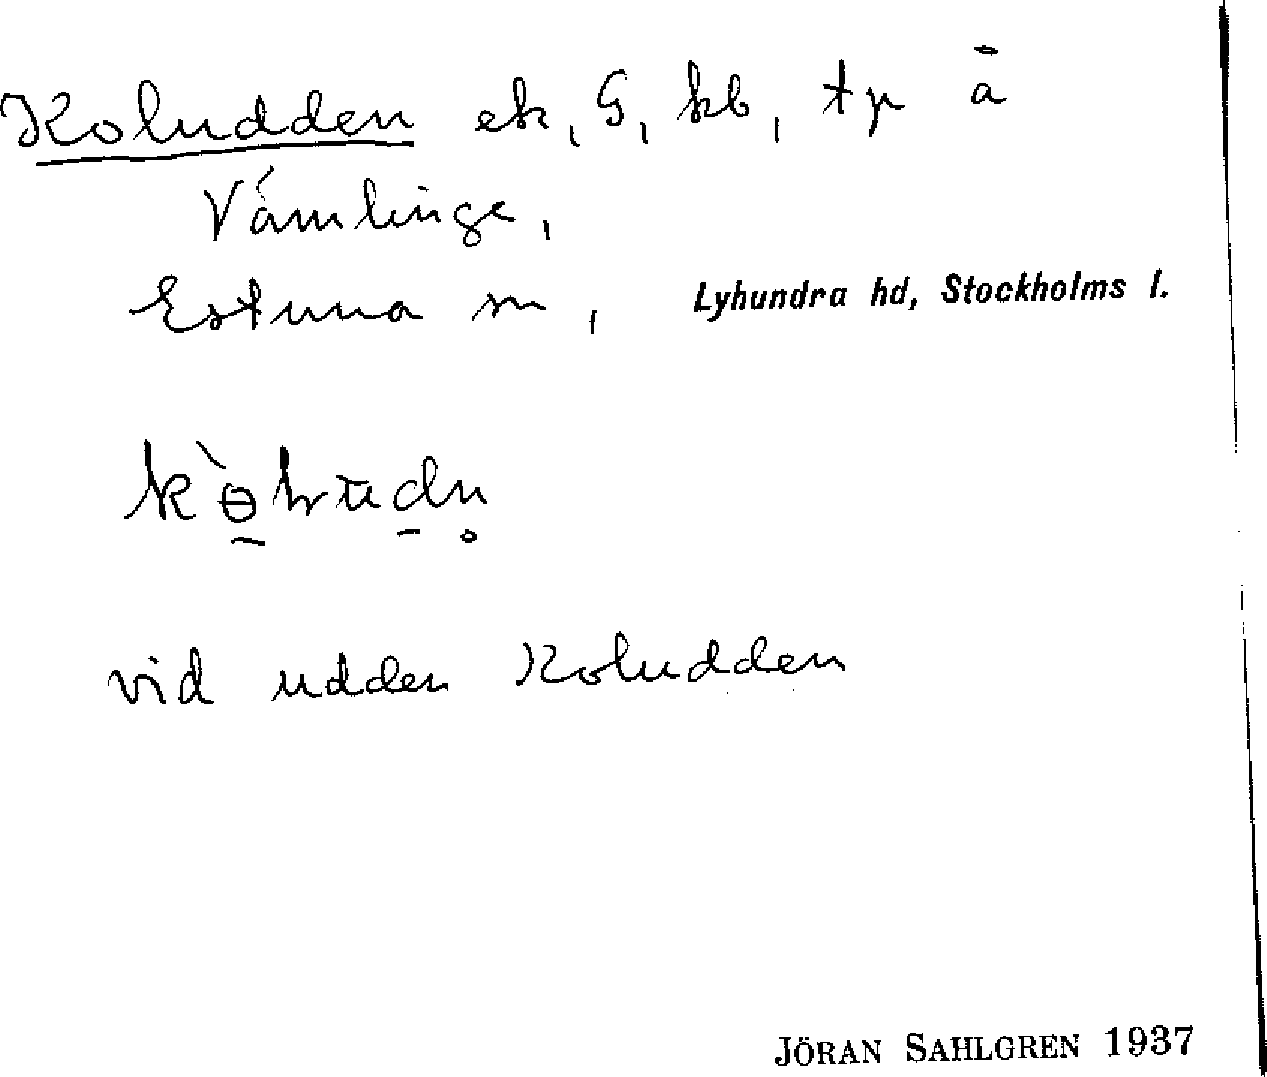 Koludden ek, G, kb, tp å
Vämlinge,
Estuna sn, Lyhundra hd, Stockholms l.
vid udden Koludden
JÖRAN SAHLGREN 1937